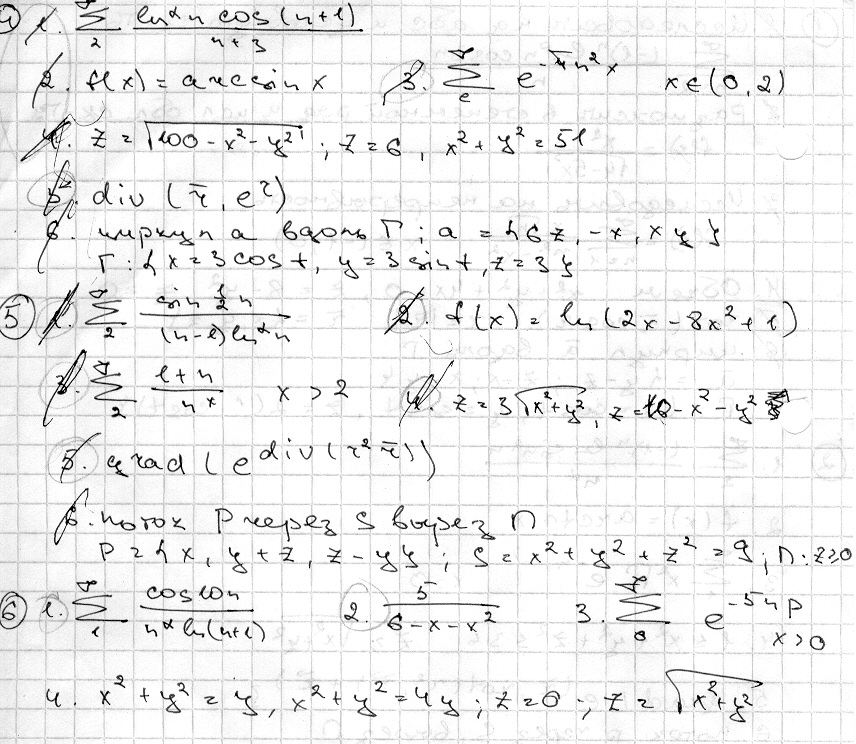 ④ 1. ∞ Σ 2 ln^α n cos(n+1) / n+3
2. f(x) = arcsin x 3. ∞ Σ e^{-√n n² x} x ∈ (0, 2)
4. z = √100 - x² - y² ; z = 6, x² + y² = 51
5. div (r̄, e^r)
6. циркул a вдоль Γ; a = {6z, -x, xy}
Γ: {x = 3 cos t, y = 3 sin t, z = 3}
⑤ 1. ∞ Σ 2 sin ½ n / (n-1) ln^α n 2. f(x) = ln(2x - 8x² + 1)
3. ∞ Σ 2 1+n / n^x x > 2 4. z = 3√x²+y², z = 10 - x² - y²
5. grad (e^{div(r² r̄)})
6. поток P через S вырез П
P = {x, y+z, z-y}; S = x² + y² + z² = 9; П: z≥0
⑥ 1. ∞ Σ 1 cos 10n / n^α ln(n+1) 2. 5 / 6-x-x² 3. ∞ Σ 0 e^{-5np} x>0
4. x² + y² = y, x² + y² = 4y; z = 0; z = √x²+y²